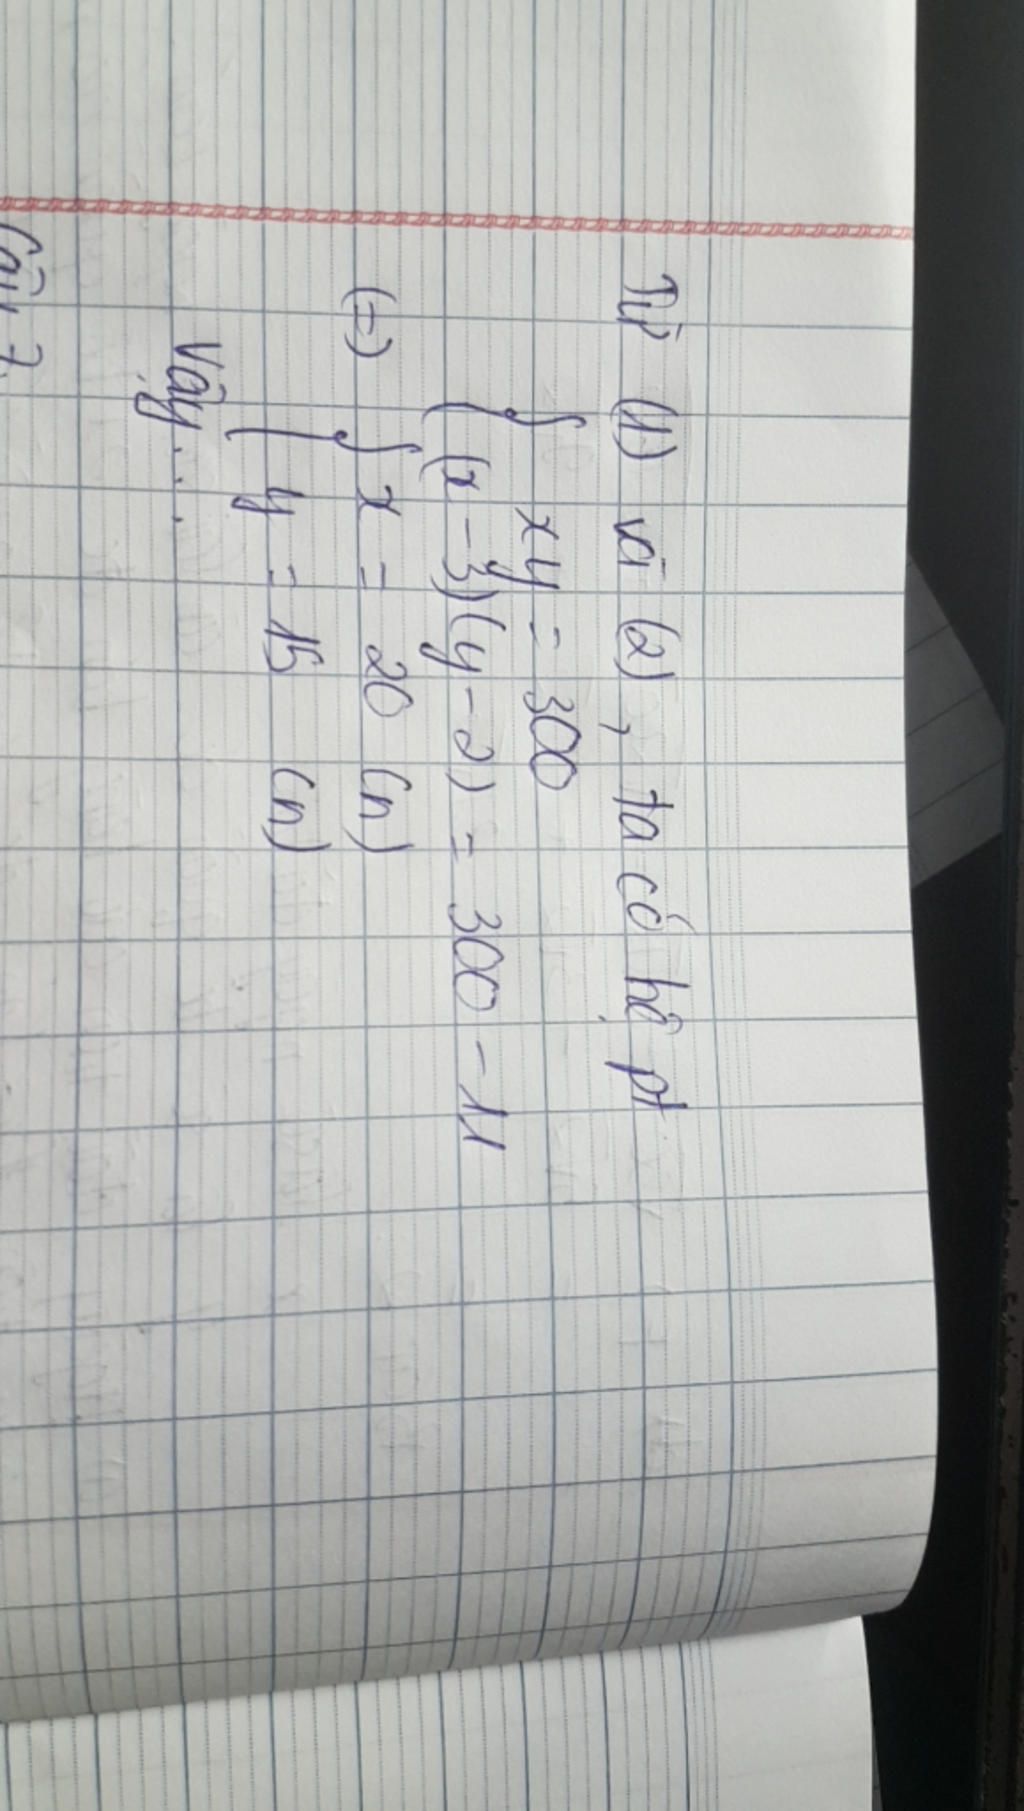 Từ (1) và (2), ta có hệ pt
{ xy = 300
(x - 3)(y - 2) = 300 - 11
(=) { x = 20 (n)
y = 15 (n)
Vậy...
Câu 7